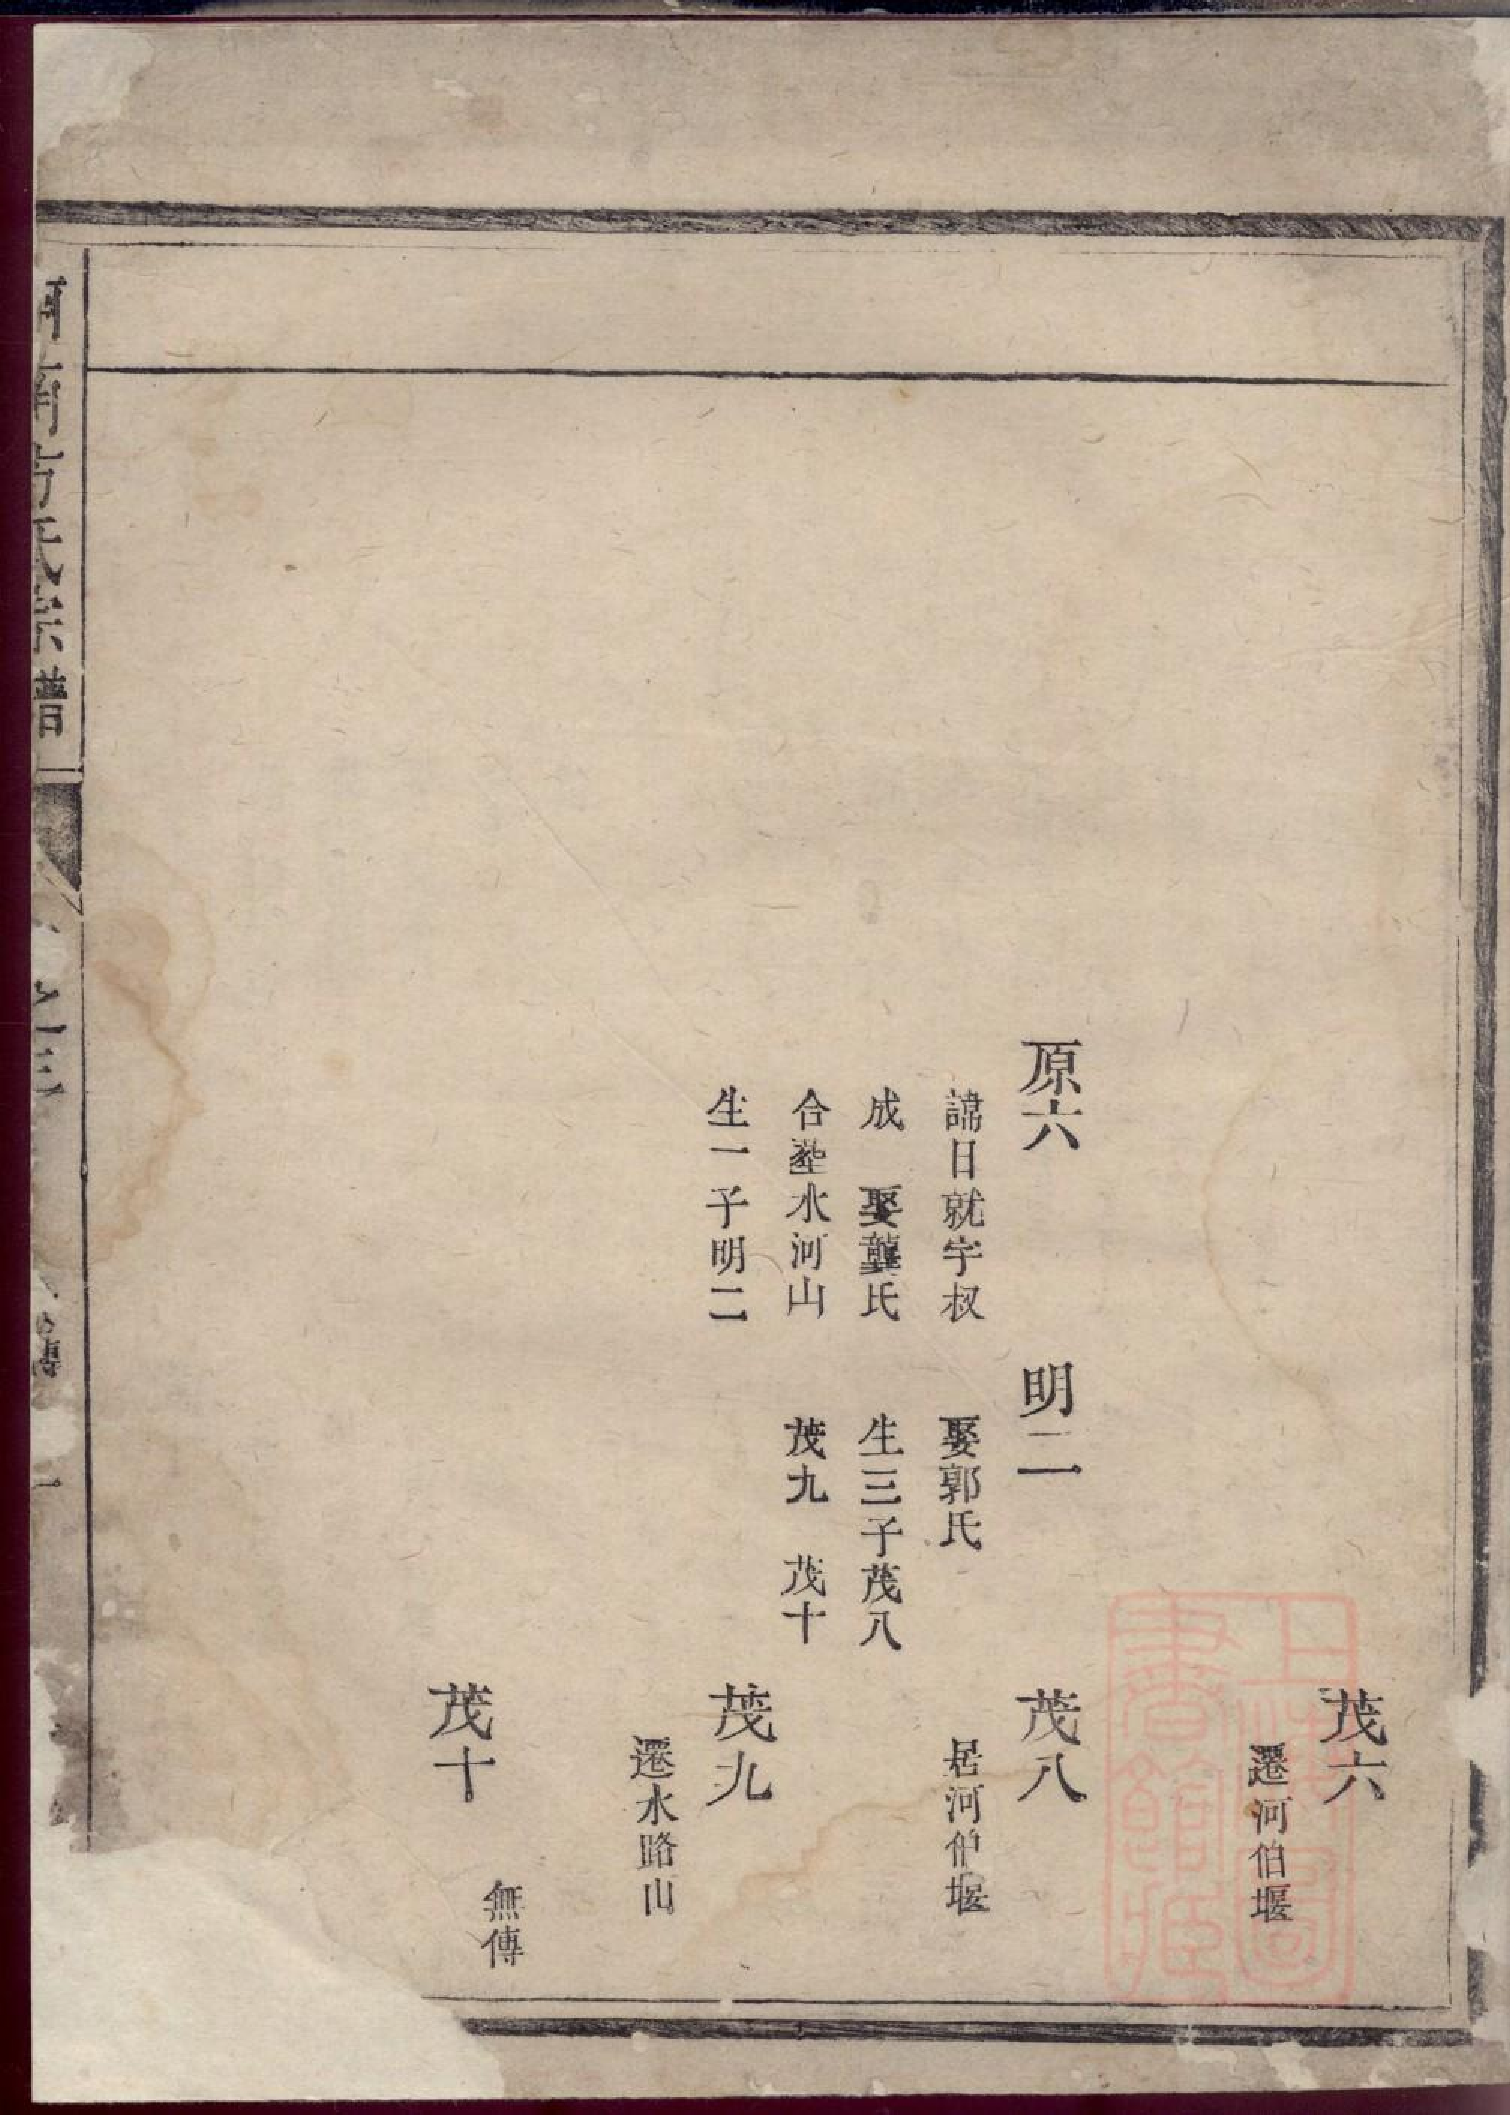 茂六
遷河伯堰
原六
諱日就字叔
成　娶龔氏
合塟水河山
生一子明二
明二
娶郭氏
生三子茂八
茂九　茂十
茂八
居河伯堰
茂九
遷水路山
茂十
無傳
河南方氏宗譜
上海圖書館藏